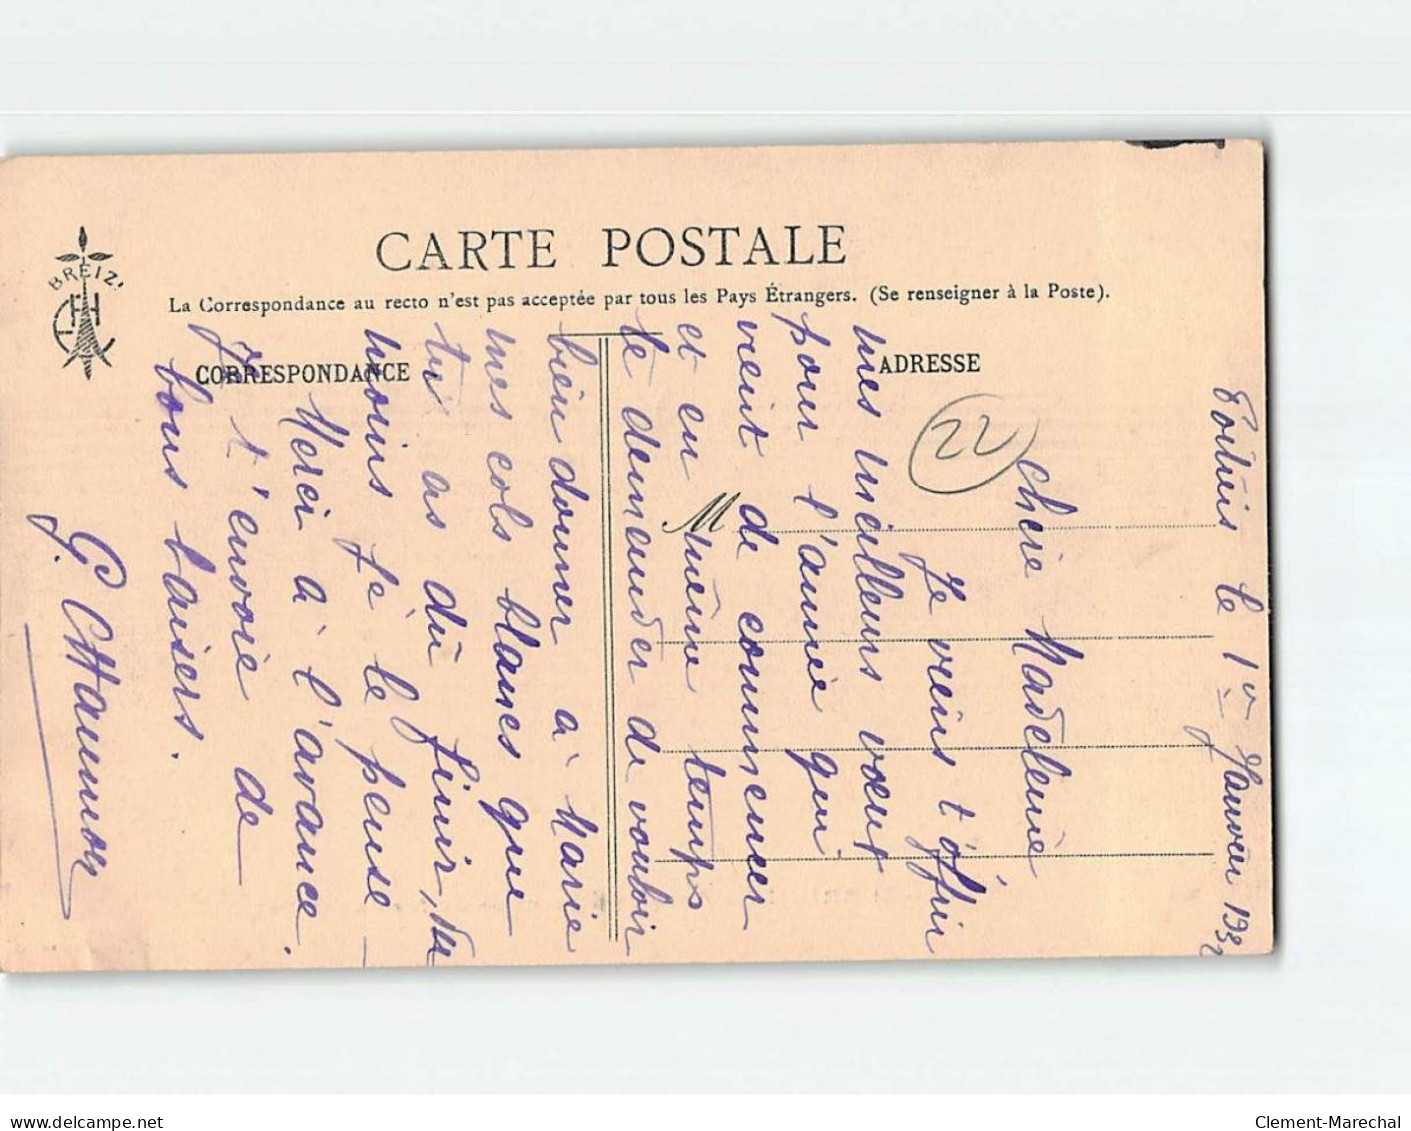 BREIZ'
CARTE POSTALE
La Correspondance au recto n'est pas acceptée par tous les Pays Étrangers. (Se renseigner à la Poste).
CORRESPONDANCE
ADRESSE
22
M
le 1er Janvier 1932
Chère Madeleine
Je viens t'offrir
mes meilleurs vœux
pour l'année qui
vient de commencer
et en même temps
te demander de vouloir
bien donner à Marie
mes cols blancs que
tu as dû finir, du
moins je le pense
Merci à l'avance.
Je t'envoie de
bons baisers.
G.
delcampe.net
Clement-Marechal